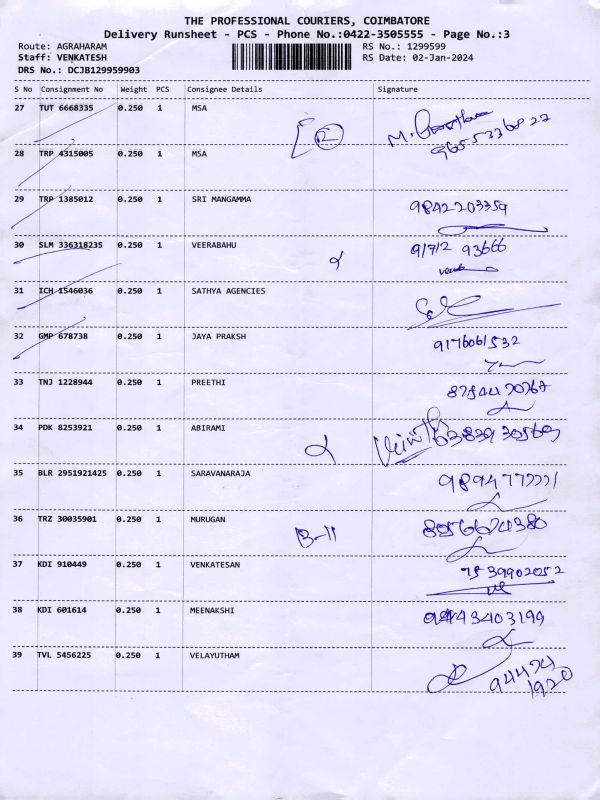 THE PROFESSIONAL COURIERS, COIMBATORE
Delivery Runsheet - PCS - Phone No.:0422-3505555 - Page No.:3
Route: AGRAHARAM RS No.: 1299599
Staff: VENKATESH RS Date: 02-Jan-2024
DRS No.: DCJB129959903
S No Consignment No Weight PCS Consignee Details Signature
27 TUT 6668335 0.250 1 MSA
2
28 TRP 4315005 0.250 1 MSA
29 TRP 1385012 0.250 1 SRI MANGAMMA 9842203359
30 SLM 336318235 0.250 1 VEERABAHU
31 ICH 1546036 0.250 1 SATHYA AGENCIES
32 GMP 678738 0.250 1 JAYA PRAKSH 9176061532
33 TNJ 1228944 0.250 1 PREETHI
34 PDK 8253921 0.250 1 ABIRAMI
35 BLR 2951921425 0.250 1 SARAVANARAJA
36 TRZ 30035901 0.250 1 MURUGAN B-11 8056624380
37 KDI 910449 0.250 1 VENKATESAN 7539902052
38 KDI 601614 0.250 1 MEENAKSHI
39 TVL 5456225 0.250 1 VELAYUTHAM 94474
1920